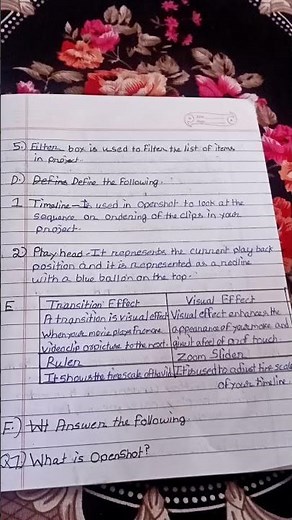 5.) Filter box is used to Filter the list of items
in project.
D.) Define Define the Following.
1 Timeline - Is used in Openshot to look at the
sequence or ordening of the clips in your
project.
2) Play head - It represents the current play back
position and it is represented as a redline
with a blue ballon on the top.
E
Transition Effect
Visual Effect
A transition is visual effect
When your movie plays from one
videoclip or picture to the next.
Visual effect enhances the
appearance of your movie and
give it a feel of and touch
Ruler
Zoom Slider
It shows the time scale of
It is used to adjust time scale
of your timeline.
F.) Wt Answer the following
Q1) What is OpenShot?